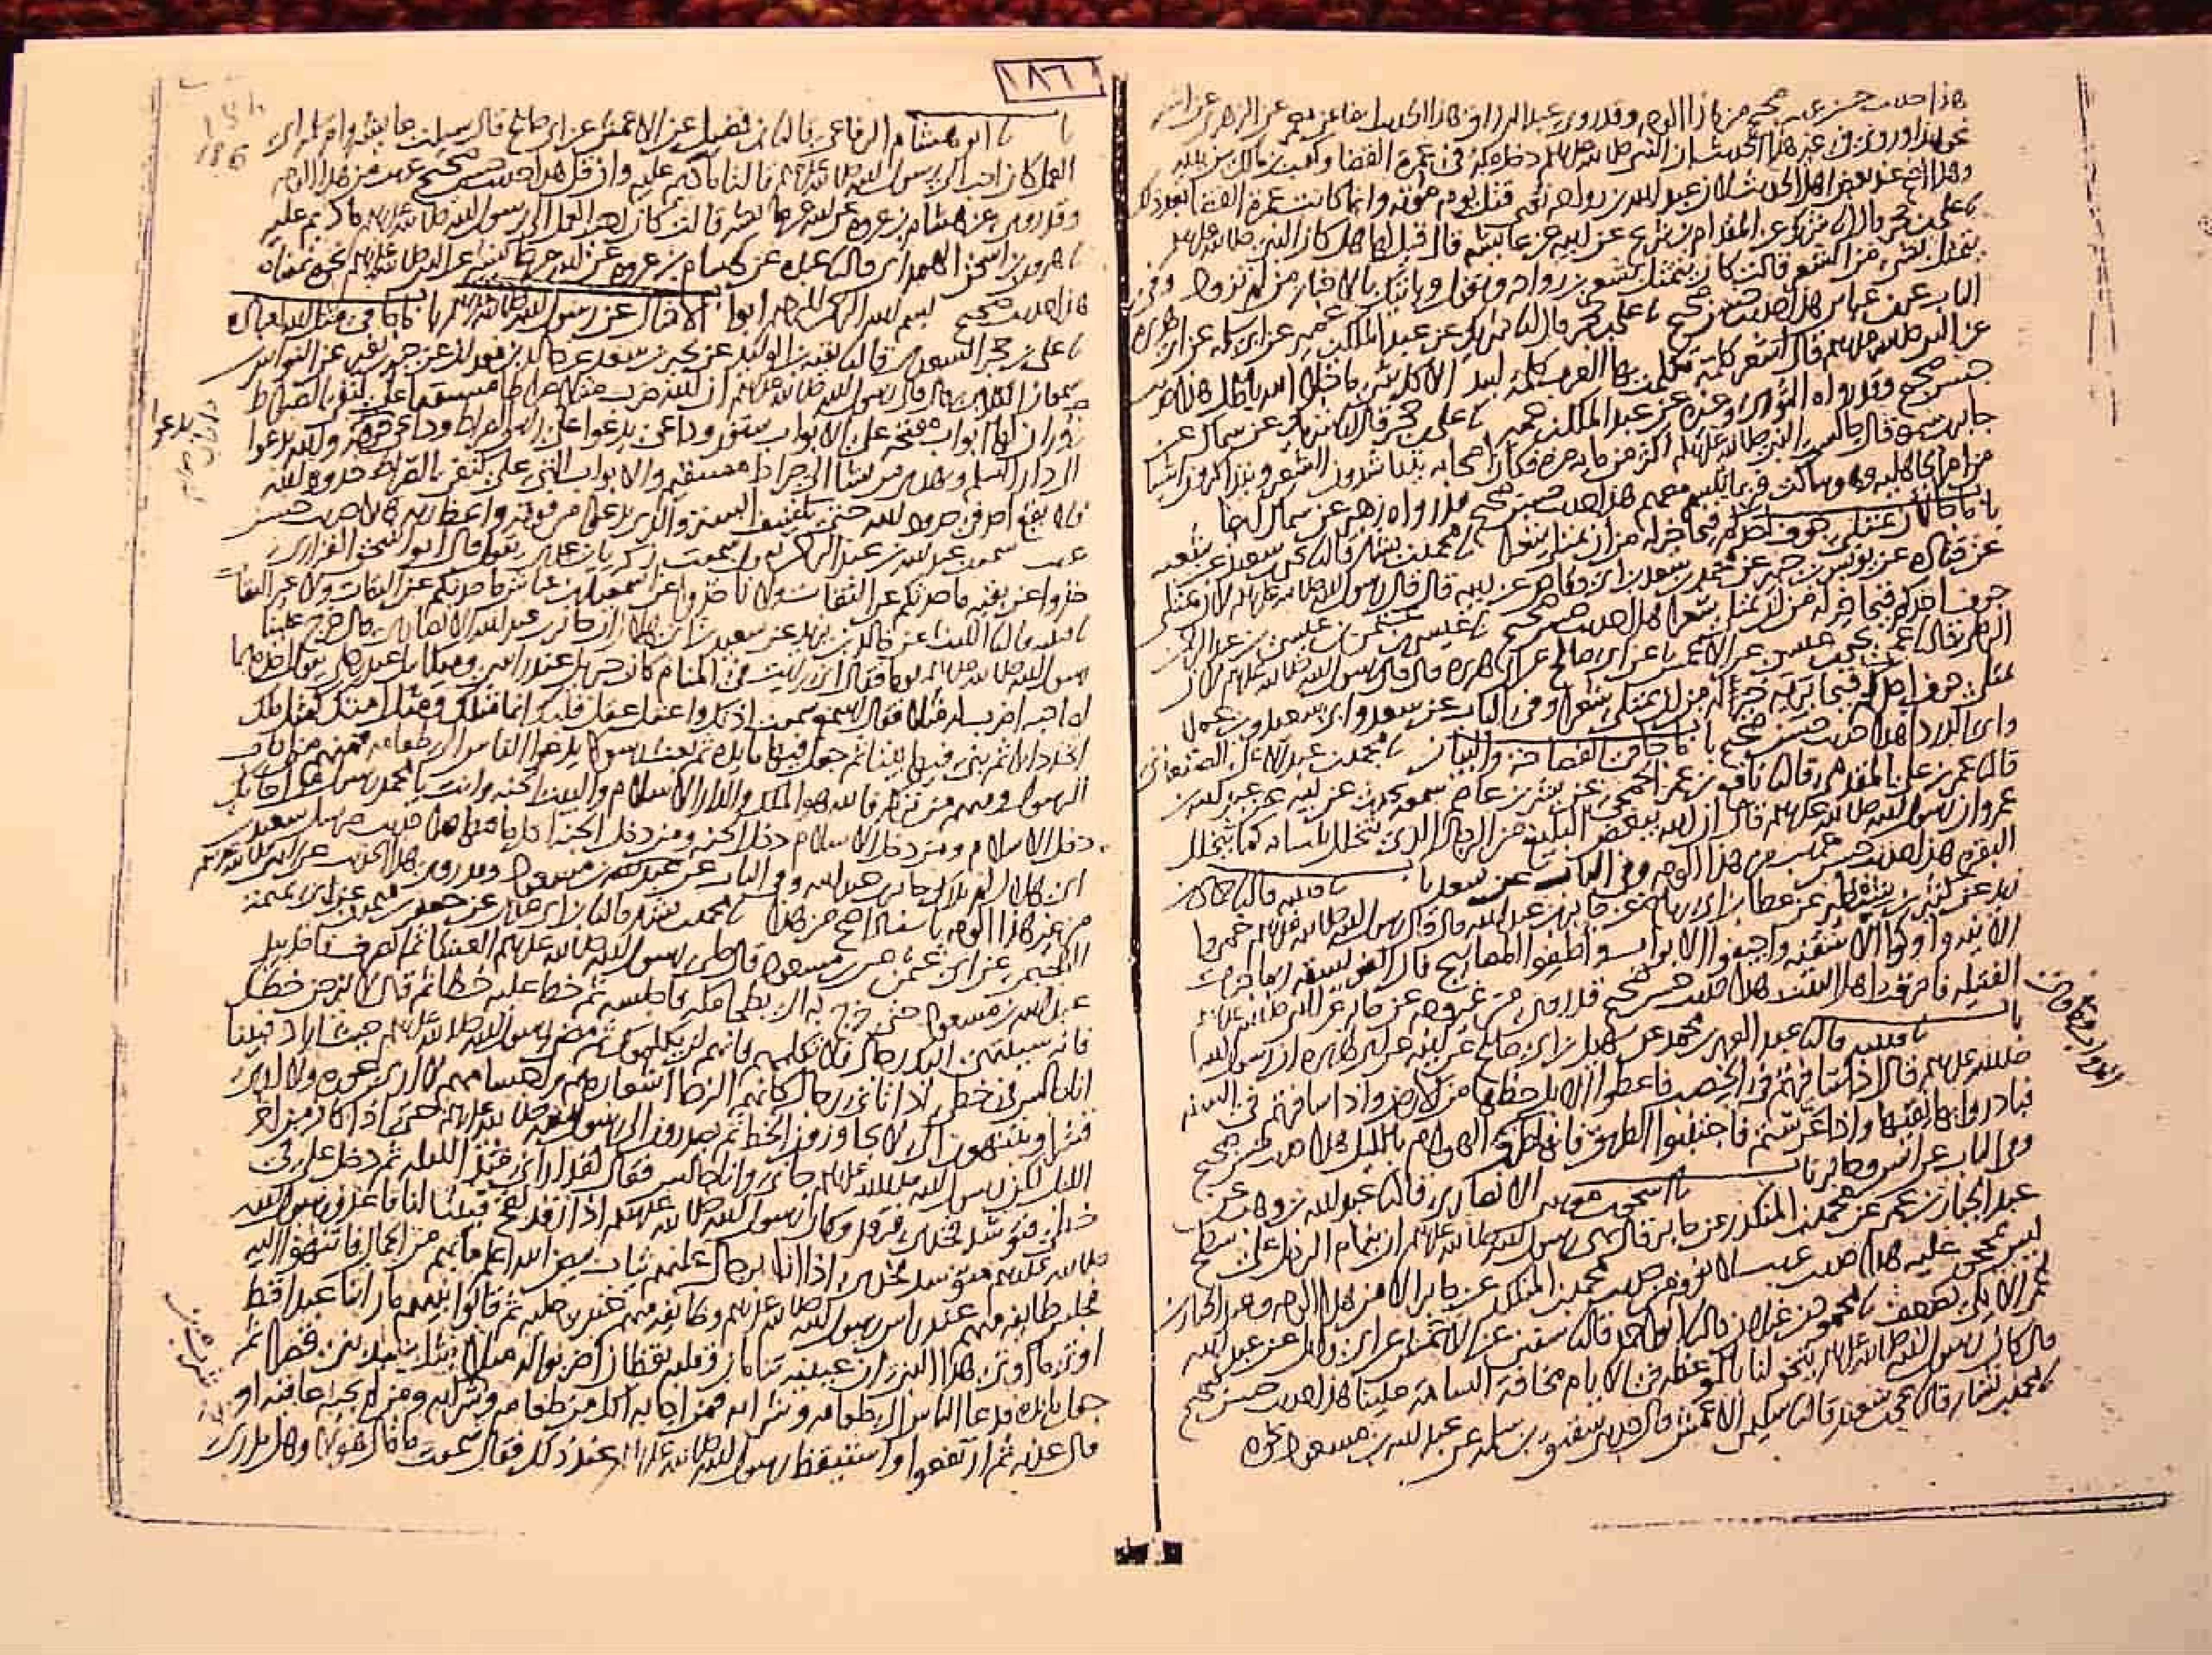 هذا حديث حسن غريب صحيح من هذا الوجه وقد روى عبد الرزاق هذا الحديث ايضا عن معمر عن الزهري عن انس
نحو هذا وروي في غير هذا الحديث ان النبي صلى الله عليه وسلم دخل مكة في عمرة القضا وكعب بن مالك بين يديه
وهذا اصح عند بعض اهل الحديث لان عبد الله بن رواحه قتل يوم مؤته وانما كانت عمرة القضا بعد ذلك
علي بن حجر قال انا شريك عن المقدام بن شريح عن ابيه عن عايشه قال قيل لها هل كان النبي صلى الله عليه وسلم
يتمثل بشي من الشعر قالت كان يتمثل بشعر بن رواحه ويقول وياتيك بالاخبار من لم تزود وفي
الباب عن بن عباس هذا حديث حسن صحيح علي بن حجر قال انا شريك عن عبد الملك بن عمير عن ابي سلمه عن ابي هريره
عن النبي صلى الله عليه وسلم قال اشعر كلمة تكلمت بها العرب كلمة لبيد الا كل شي ما خلا الله باطل هذا حديث
حسن صحيح وقد رواه الثوري وغيره عن عبد الملك بن عمير علي بن حجر قال انا شريك عن سماك عن
جابر بن سمرة قال جالست النبي صلى الله عليه وسلم اكثر من مايه مره فكان اصحابه يتناشدون الشعر ويتذاكرون اشيا
من امر الجاهليه وهو ساكت فربما تبسم معهم هذا حديث حسن صحيح وقد رواه زهير عن سماك ايضا
باب ما جا لان يمتلي جوف احدكم قيحا خير له من ان يمتلي شعرا محمد بن بشار قال نا يحيى بن سعيد عن شعبه
عن قتاده عن يونس بن جبير عن محمد بن سعد بن ابي وقاص عن ابيه قال قال رسول الله صلى الله عليه وسلم لان يمتلي
جوف احدكم قيحا خير له من ان يمتلي شعرا هذا حديث حسن صحيح عيسى بن عثمان بن عيسى بن عبد الرحمن
الرملي قال نا عمي يحيى بن عيسى عن الاعمش عن ابي صالح عن ابي هريره قال قال رسول الله صلى الله عليه وسلم لان
يمتلي جوف احدكم قيحا يريه خير له من ان يمتلي شعرا وفي الباب عن سعد وابي سعيد وبن عمر
وابي الدردا هذا حديث حسن صحيح باب ما جا في الفصاحة والبيان محمد بن عبد الاعلى الصنعاني
قال نا عمر بن علي المقدمي قال نا نافع بن عمر الجمحي عن بشر بن عاصم سمعه يحدث عن ابيه عن عبد الله بن
عمرو ان رسول الله صلى الله عليه وسلم قال ان الله يبغض البليغ من الرجال الذي يتخلل بلسانه كما يتخلل
البقره هذا حديث حسن غريب من هذا الوجه وفي الباب عن سعد باب قتيبه قال نا حماد بن
زيد عن كثير بن شنظير عن عطا بن ابي رباح عن جابر بن عبد الله قال قال رسول الله صلى الله عليه وسلم خمروا
الانيه واوكوا الاسقيه واجيفوا الابواب واطفوا المصابيح فان الفويسقه ربما جرت
الفتيله فاحرقت اهل البيت هذا حديث حسن صحيح قد روي من غير وجه عن جابر عن النبي صلى الله عليه وسلم
باب قتيبه قال نا عبد العزيز بن محمد عن سهيل بن ابي صالح عن ابيه عن ابي هريره ان رسول الله
صلى الله عليه وسلم قال اذا سافرتم في الخصب فاعطوا الابل حظها من الارض واذا سافرتم في السنه
فبادروا بها نقيها واذا عرستم فاجتنبوا الطريق فانها طرق الدواب وماوى الهوام بالليل هذا حديث حسن صحيح
وفي الباب عن انس وجابر باب اسحق بن موسى الانصاري قال نا عبد الله بن وهب عن
عبد الجبار بن عمر عن محمد بن المنكدر عن جابر قال نهى رسول الله صلى الله عليه وسلم ان ينام الرجل على سطح
ليس بمحجور عليه هذا حديث غريب لا نعرفه من حديث محمد بن المنكدر عن جابر الا من هذا الوجه وعبد الجبار بن
عمر الايلي يضعف محمود بن غيلان قال نا ابو احمد قال نا سفين عن الاعمش عن ابي وايل عن عبد الله
قال كان رسول الله صلى الله عليه وسلم يتخولنا بالموعظه في الايام مخافة السامة علينا هذا حديث حسن صحيح
محمد بن بشار قال نا يحيى بن سعيد قال نا سليمن الاعمش قال حدثني شقيق بن سلمه عن عبد الله بن مسعود نحوه
الدواب وماوى
١٨٦
186
باب ابو هشام الرفاعي قال نا بن فضيل عن الاعمش عن ابي صالح قال سيلت عايشه وام سلمه اي
العمل كان احب الى رسول الله صلى الله عليه وسلم قالتا ما ديم عليه وان قل هذا حديث حسن صحيح غريب من هذا الوجه
وقد روي عن هشام بن عروه عن ابيه عن عايشه قالت كان احب العمل الى رسول الله صلى الله عليه وسلم ما ديم عليه
هرون بن اسحق الهمداني قال نا عبده عن هشام بن عروه عن ابيه عن عايشه عن النبي صلى الله عليه وسلم نحوه بمعناه
هذا حديث صحيح بسم الله الرحمن الرحيم ابواب الامثال عن رسول الله صلى الله عليه وسلم باب ما جا في مثل الله لعباده
علي بن حجر السعدي قال نا بقيه بن الوليد عن بحير بن سعد عن خالد بن معدان عن جبير بن نفير عن النواس بن
سمعان الكلابي قال قال رسول الله صلى الله عليه وسلم ان الله ضرب مثلا صراطا مستقيما على كنفي الصراط
زوران لهما ابواب مفتحه على الابواب ستور وداعي يدعوا على راس الصراط وداعي يدعوا فوقه والله يدعوا
الى دار السلم ويهدي من يشا الى صراط مستقيم والابواب التي على كنفي الصراط حدود الله
فلا يقع احد في حدود الله حتى يكشف الستر والذي يدعوا من فوقه واعظ ربه هذا حديث حسن
غريب سمعت عبد الله بن عبد الرحمن يقول سمعت زكريا بن عدي يقول قال ابو اسحق الفزاري
خذوا عن بقيه ما حدثكم عن الثقات ولا تاخذوا عن اسمعيل بن عياش ما حدثكم عن الثقات ولا غير الثقات
قتيبه قال نا الليث عن خالد بن يزيد عن سعيد بن ابي هلال ان جابر بن عبد الله الانصاري قال خرج علينا
رسول الله صلى الله عليه وسلم يوما فقال اني رايت في المنام كان جبريل عند راسي وميكايل عند رجلي يقول احدهما
لصاحبه اضرب له مثلا فقال اسمع سمعت اذنك واعقل عقل قلبك انما مثلك ومثل امتك كمثل ملك
اتخذ دارا ثم بنى فيها بيتا ثم جعل فيها مايده ثم بعث رسولا يدعوا الناس الى طعامه فمنهم من اجاب
الرسول ومنهم من تركه فالله هو الملك والدار الاسلام والبيت الجنه وانت يا محمد رسول من اجابك
دخل الاسلام ومن دخل الاسلام دخل الجنه ومن دخل الجنه اكل ما فيها هذا حديث مرسل سعيد
ابن ابي هلال لم يدرك جابر بن عبد الله وفي الباب عن عبد الله بن مسعود وقد روي هذا الحديث عن النبي صلى الله عليه وسلم
من غير هذا الوجه باسناد اصح من هذا محمد بن بشار قال نا بن ابي عدي عن جعفر بن ميمون عن ابي تميمه
الهجيمي عن ابي عثمن عن بن مسعود قال صلى رسول الله صلى الله عليه وسلم العشا ثم انصرف فاخذ بيد
عبد الله بن مسعود حتى خرج به الى بطحا مكه فاجلسه ثم خط عليه خطا ثم قال لا تبرحن خطك
فانه سينتهي اليك رجال فلا تكلمهم فانهم لن يكلموك ثم مضى رسول الله صلى الله عليه وسلم حيث اراد فبينا
انا جالس في خطي اذ اتاني رجال كانهم الزط اشعارهم واجسامهم لا ارى عورة ولا ارى
قشرا وينتهون الي لا يجاوزون الخط ثم يصدرون الى رسول الله صلى الله عليه وسلم حتى اذا كان من اخر
الليل لكن رسول الله صلى الله عليه وسلم جاني وانا جالس فقال لقد اراني منذ الليله ثم دخل علي في
خطي فتوسد فخذي فرقد وكان رسول الله صلى الله عليه وسلم اذا رقد نفخ فبينا انا قاعد ورسول الله
صلى الله عليه وسلم متوسد فخذي اذا انا برجال عليهم ثياب بيض الله اعلم ما بهم من الجمال فانتهوا اليه
فجلس طايفه منهم عند راس رسول الله صلى الله عليه وسلم وطايفه منهم عند رجليه ثم قالوا بينهم ما راينا عبدا قط
اوتي ما اوتي هذا النبي ان عينيه تنامان وقلبه يقظان اضربوا له مثلا مثل سيد بنى قصرا ثم
جعل مايده فدعا الناس الى طعامه وشرابه فمن اجابه اكل من طعامه وشرب من شرابه ومن لم يجبه عاقبه او
قال عذبه ثم ارتفعوا واستيقظ رسول الله صلى الله عليه وسلم عند ذلك فقال سمعت ما قال هولا وهل تدري